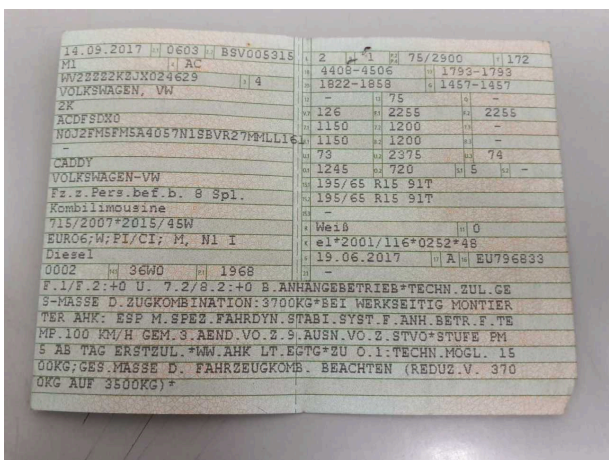 14.09.2017 0603 BSV005315
M1 AC
WV2ZZZ2KZJX024629 4
VOLKSWAGEN, VW
2K
ACDFSDX0
N0J2FM5FM5A4057N1SBVR27MMLL161
-
CADDY
VOLKSWAGEN-VW
Fz.z.Pers.bef.b. 8 Spl.
Kombilimousine
715/2007*2015/45W
EURO6;W;PI/CI; M, N1 I
Diesel
0002 36W0 1968
2 1 75/2900 172
4408-4506 1793-1793
1822-1858 1457-1457
- 75 -
126 2255 2255
1150 1200 -
1150 1200 -
73 2375 74
1245 720 5 -
195/65 R15 91T
195/65 R15 91T
-
Weiß 0
e1*2001/116*0252*48
19.06.2017 A EU796833
-
F.1/F.2:+0 U. 7.2/8.2:+0 B.ANHÄNGEBETRIEB*TECHN.ZUL.GE
S-MASSE D.ZUGKOMBINATION:3700KG*BEI WERKSEITIG MONTIER
TER AHK: ESP M.SPEZ.FAHRDYN.STABI.SYST.F.ANH.BETR.F.TE
MP.100 KM/H GEM.3.AEND.VO.Z.9.AUSN.VO.Z.STVO*STUFE PM
5 AB TAG ERSTZUL.*WW.AHK LT.EGTG*ZU O.1:TECHN.MÖGL. 15
00KG;GES.MASSE D. FAHRZEUGKOMB. BEACHTEN (REDUZ.V. 370
0KG AUF 3500KG)*